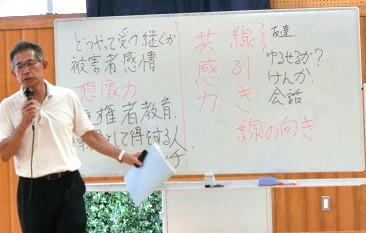 どうやって受け継ぐか
被害者感情
想像力
権者教育
して得をする人
共感力
線引き
友達
ゆるせるか？
けんか
会話
線の向き